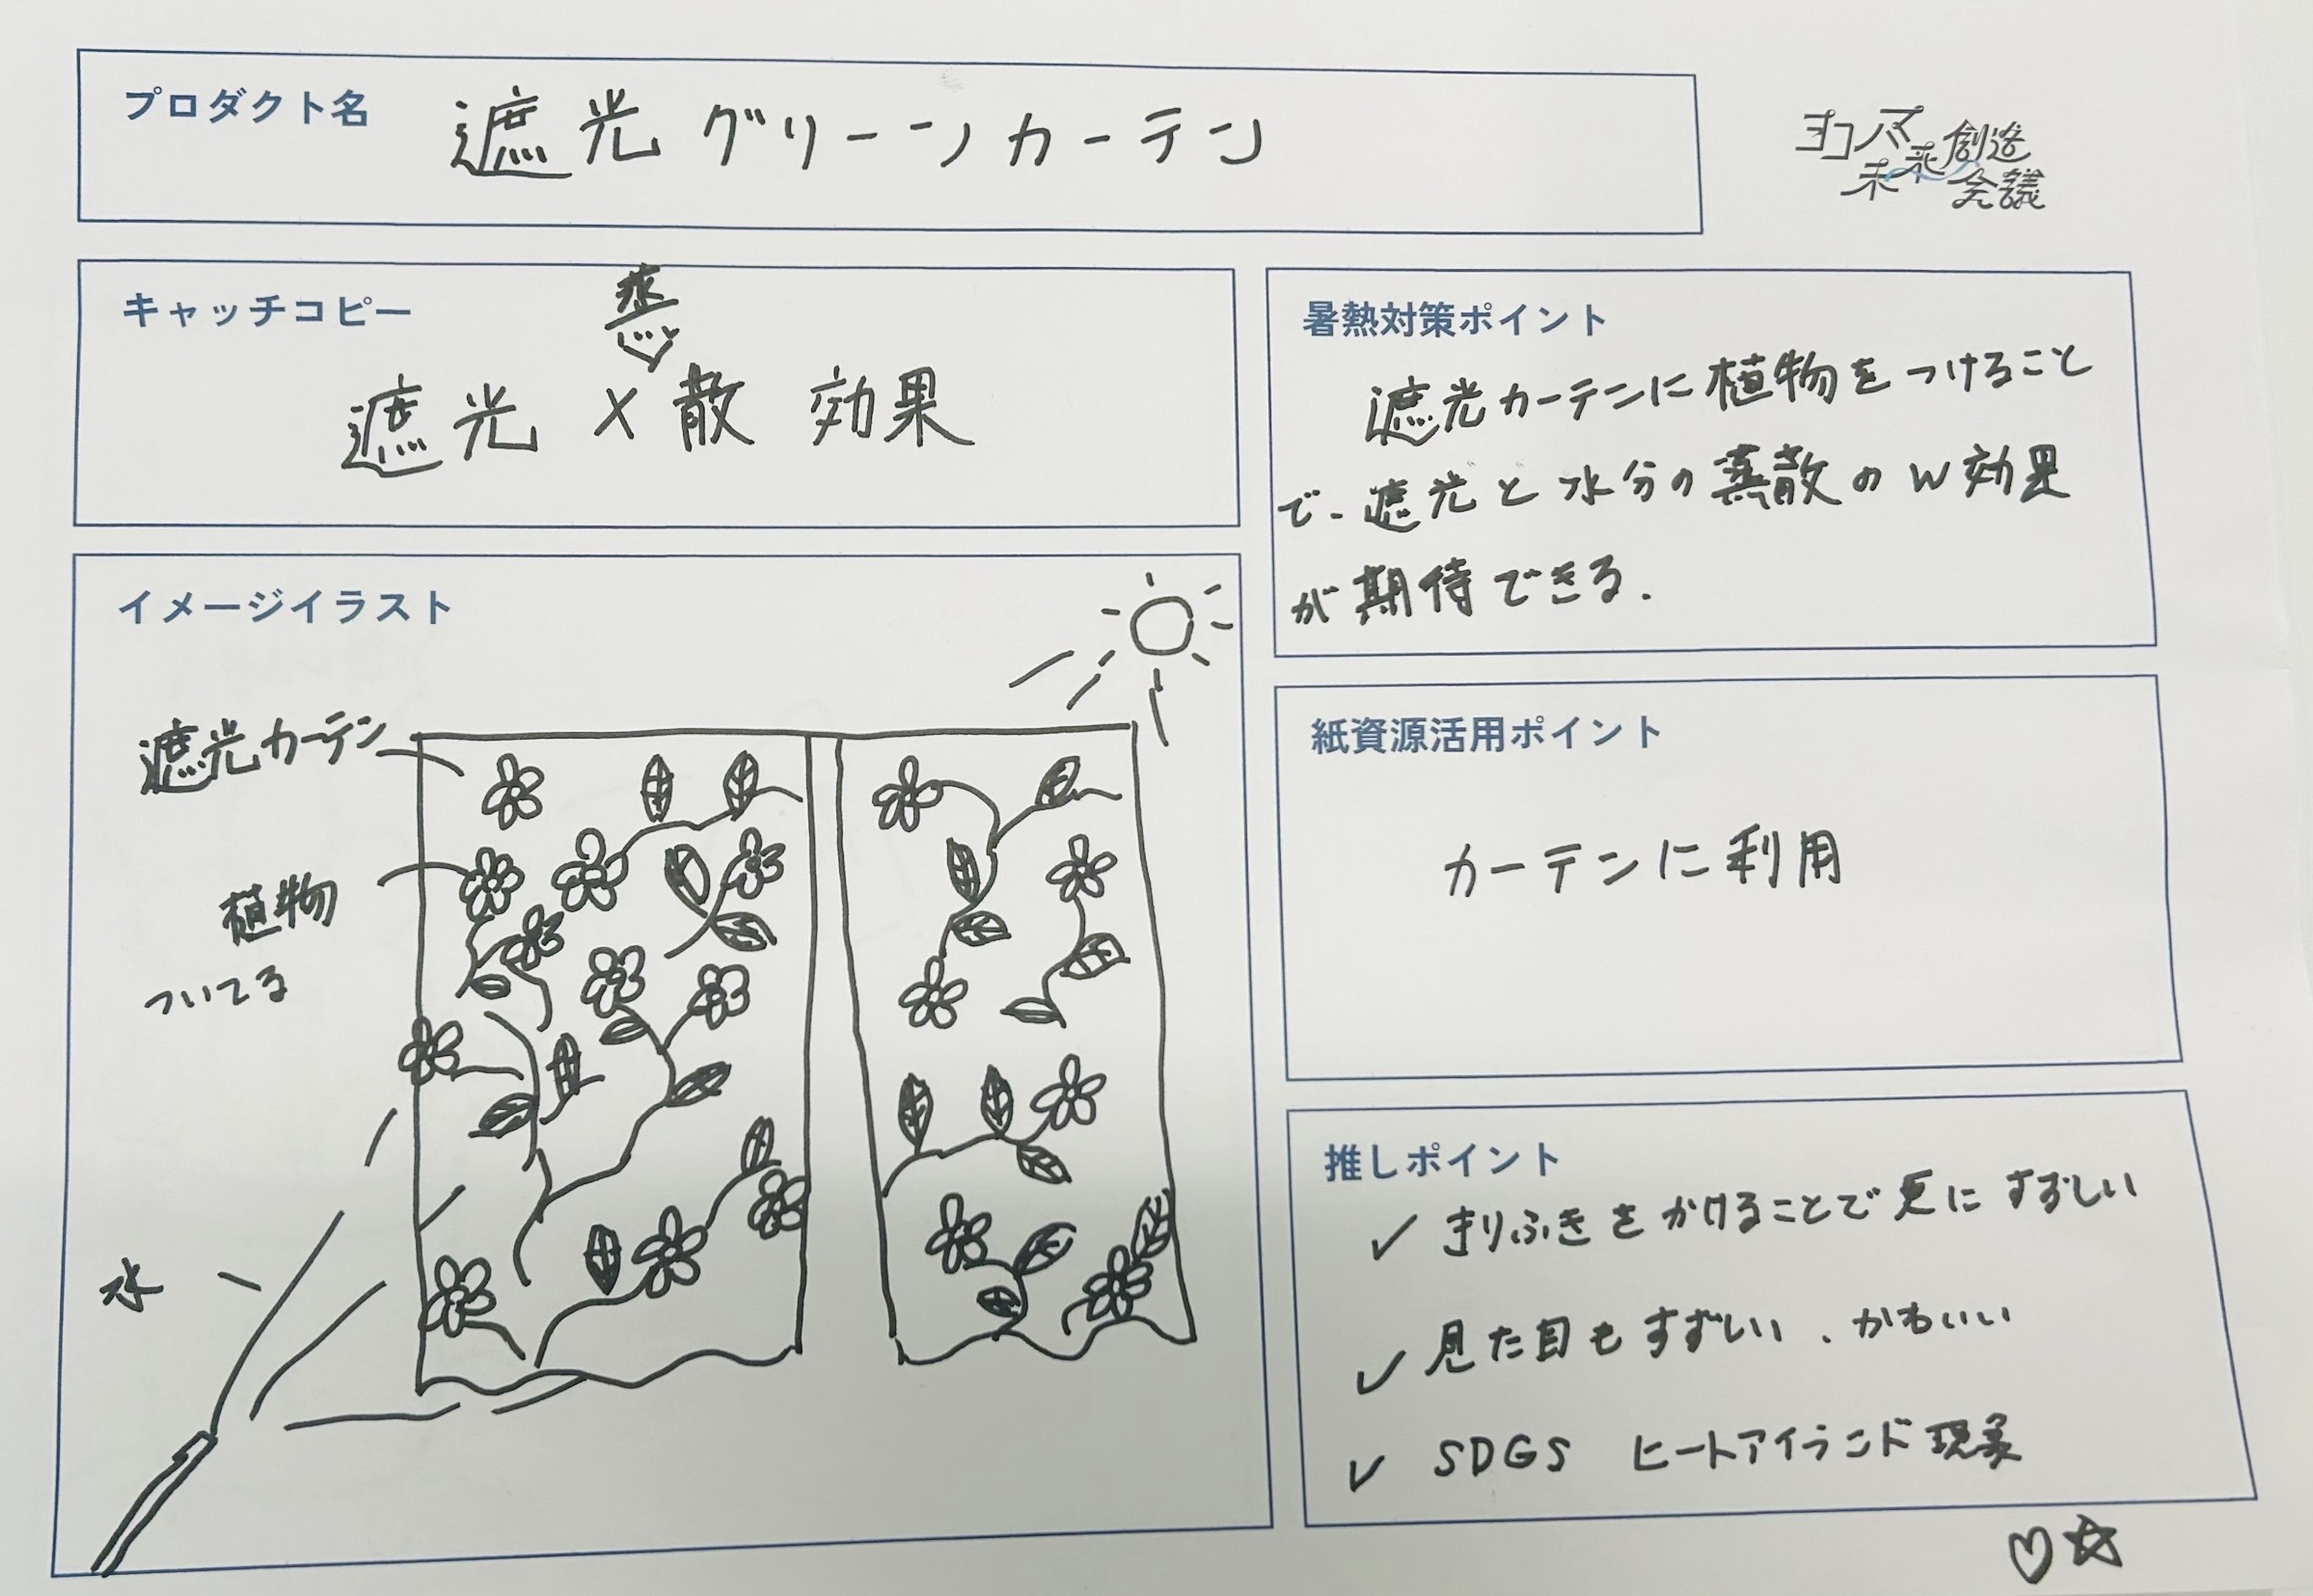 プロダクト名
遮光グリーンカーテン
ヨコハマ
未来創造
会議
キャッチコピー
蒸
遮光×散 効果
暑熱対策ポイント
遮光カーテンに植物をつけること
で、遮光と水分の蒸散のW効果
が期待できる.
イメージイラスト
遮光カーテン
植物
ついてる
水
紙資源活用ポイント
カーテンに利用
推しポイント
✓ きりふきをかけることで更にすずしい
✓ 見た目もすずしい、かわいい
✓ SDGS ヒートアイランド現象